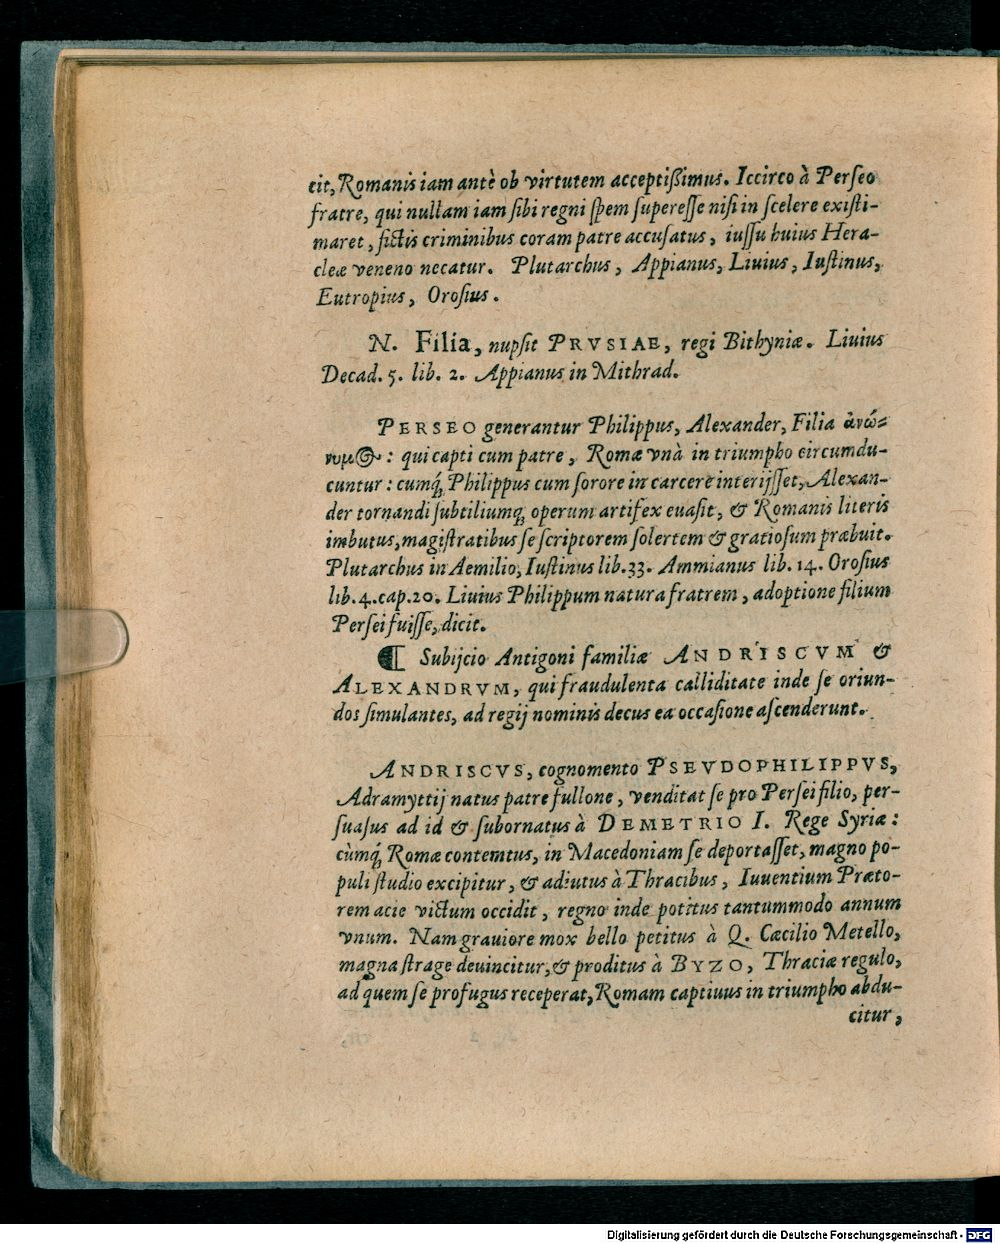 cit, Romanis iam antè ob virtutem acceptißimus. Iccirco à Perseo
fratre, qui nullam iam sibi regni spem superesse nisi in scelere existi-
maret, fictis criminibus coram patre accusatus, iussu huius Hera-
cleæ veneno necatur. Plutarchus, Appianus, Liuius, Iustinus,
Eutropius, Orosius.
N. Filia, nupsit PRVSIAE, regi Bithyniæ. Liuius
Decad. 5. lib. 2. Appianus in Mithrad.
PERSEO generantur Philippus, Alexander, Filia ἀνώ-
νυμος: qui capti cum patre, Romæ vnà in triumpho circumdu-
cuntur: cumq́; Philippus cum sorore in carcere interijsset, Alexan-
der tornandi subtiliumq; operum artifex euasit, & Romanis literis
imbutus, magistratibus se scriptorem solertem & gratiosum præbuit.
Plutarchus in Aemilio, Iustinus lib. 33. Ammianus lib. 14. Orosius
lib. 4. cap. 20. Liuius Philippum natura fratrem, adoptione filium
Persei fuisse, dicit.
¶ Subijcio Antigoni familiæ ANDRISCVM &
ALEXANDRVM, qui fraudulenta calliditate inde se oriun-
dos simulantes, ad regij nominis decus ea occasione ascenderunt.
ANDRISCVS, cognomento PSEVDOPHILIPPVS,
Adramyttij natus patre fullone, venditat se pro Persei filio, per-
suasus ad id & subornatus à DEMETRIO I. Rege Syriæ:
cùmq́; Romæ contemtus, in Macedoniam se deportasset, magno po-
puli studio excipitur, & adiutus à Thracibus, Iuuentium Præto-
rem acie victum occidit, regno inde potitus tantummodo annum
vnum. Nam grauiore mox bello petitus à Q. Cæcilio Metello,
magna strage deuincitur, & proditus à BYZO, Thraciæ regulo,
ad quem se profugus receperat, Romam captiuus in triumpho abdu-
citur,
Digitalisierung gefördert durch die Deutsche Forschungsgemeinschaft - DFG